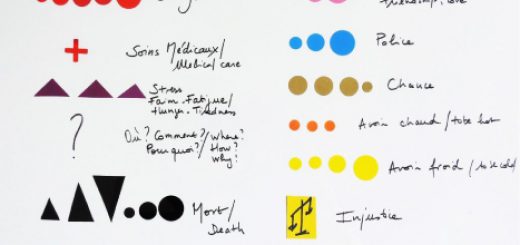 Soins Médicaux/
Medical care
Stress
Faim. Fatigue/
Hunger. Tiredness
?
Où? Comment?/ Where?
Pourquoi?/ How?
Why?
Mort/
Death
Friendship, love
Police
Chance
Avoir chaud / to be hot
Avoir froid / to be cold
Injustice